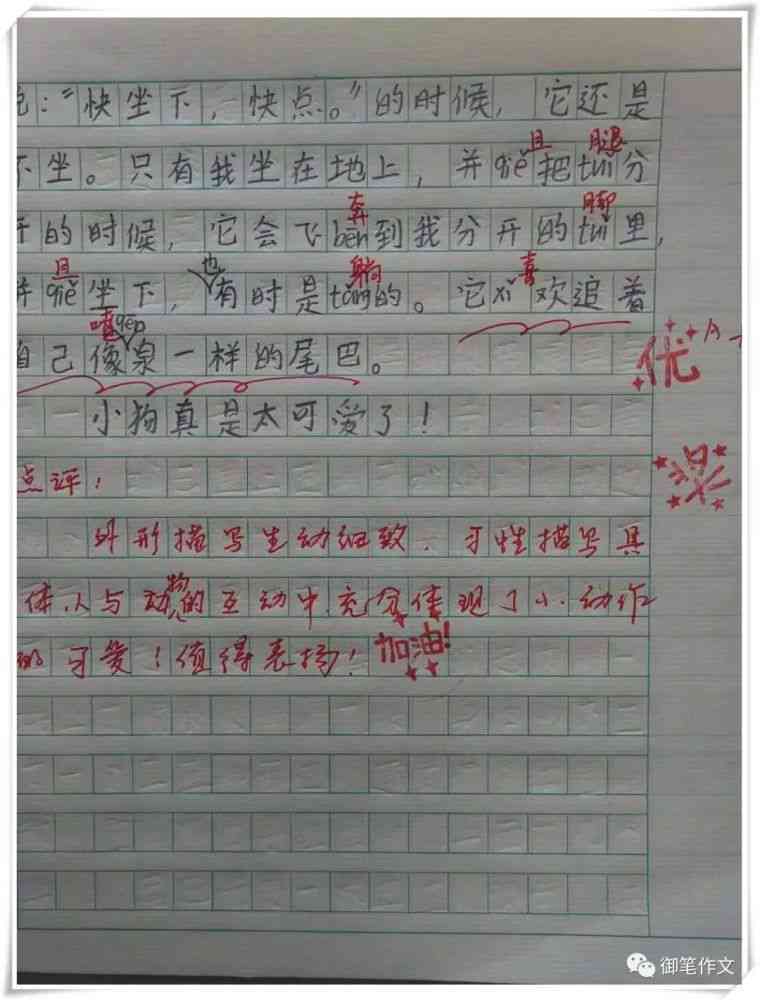 说："快坐下，快点。"的时候，它还是
不坐。只有我坐在地上，并qiě把tuǐ分
且 腿
开的时候，它会飞bēn到我分开的tuǐ里，
奔 脚
并qiě坐下，也有时是tǎng的。它xǐ欢追着
且 躺 喜
自己像pēn泉一样的尾巴。
喷
优 A+
小狗真是太可爱了！
点评：
外形描写生动细致，习性描写具
体，人与动物的互动中充分体现了小动作
的可爱！值得表扬！加油！
御笔作文